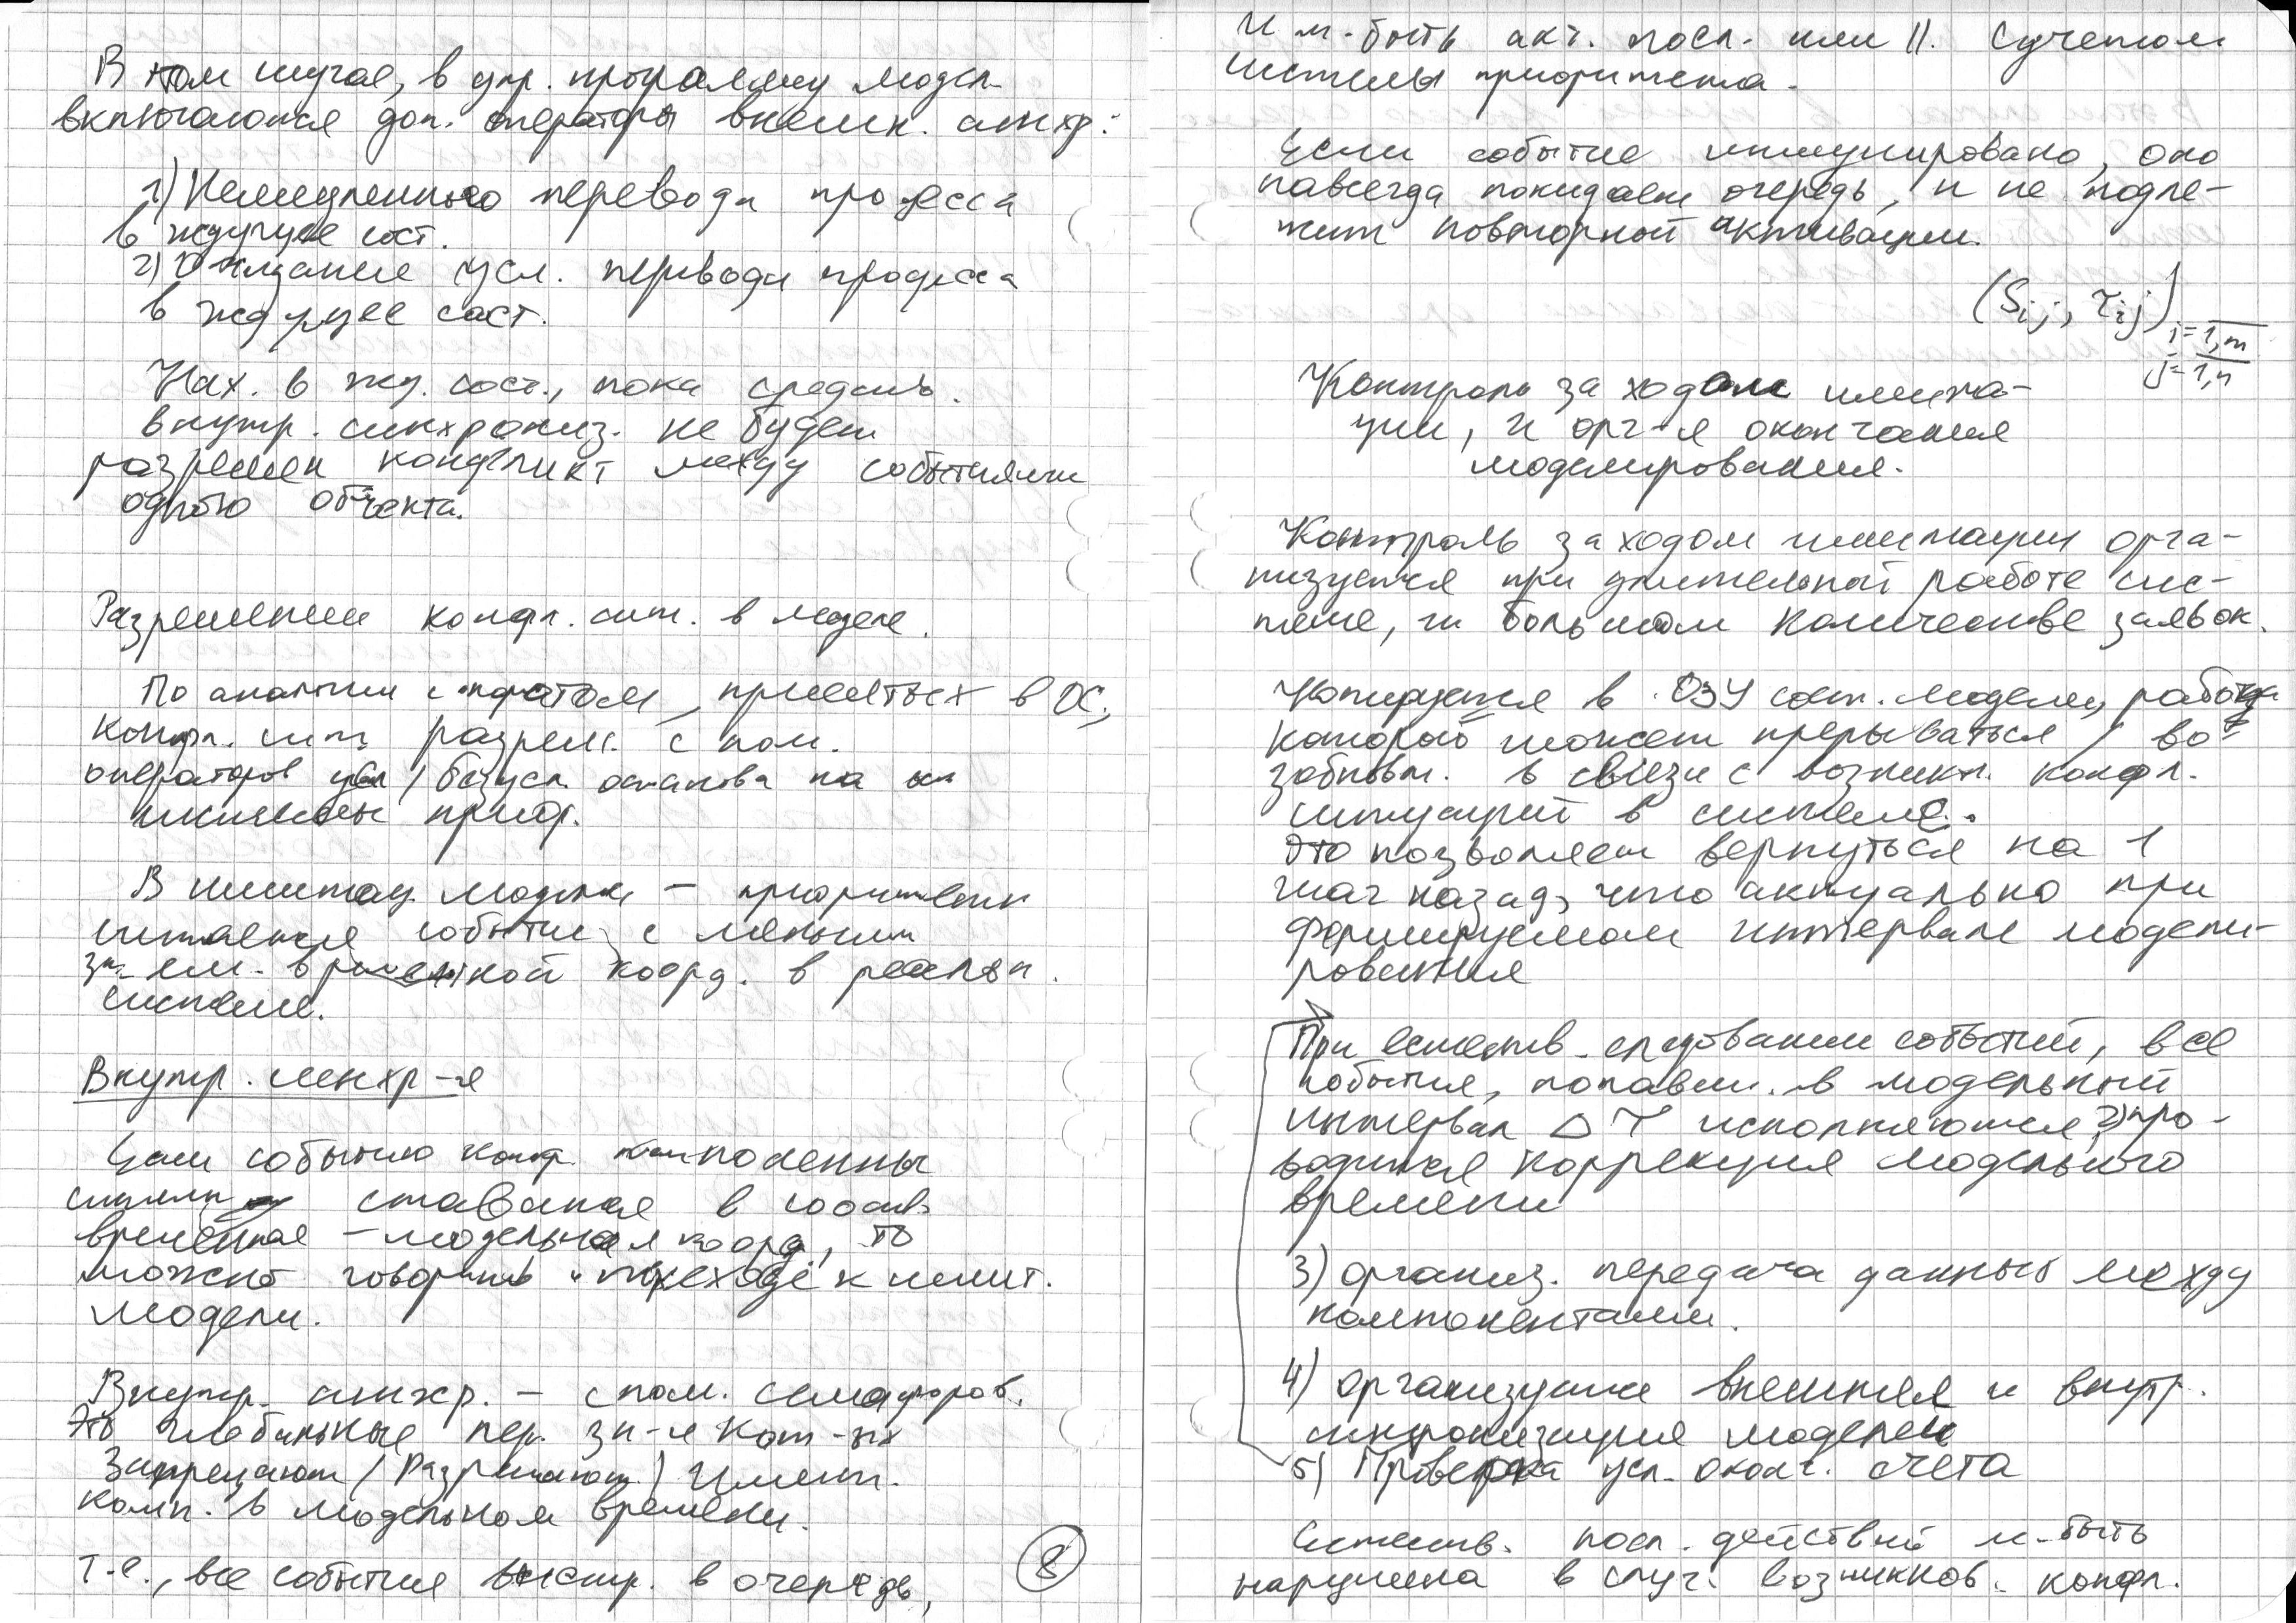 В том случае, в упр. программу модел.
включаются доп. операторы внешн. синхр:
1) Немедленного перевода процесса
в ждущее сост.
2) Ожидание усл. перевода процесса
в ждущее сост.
Нах. в жд. сост., пока средств.
внутр. синхрониз. не будет
разрешен конфликт между событиями
одного объекта.
Разрешение конфл. сит. в моделе.
По аналогии с
в ОС,
конфл. сит. разреш. с пом.
операторов усл / безусл. останова на
системы приор.
В имитац. модели – приоритетн
считается событие с меньшим
зн-ем. временной коорд. в реальн.
системе.
Внутр. синхр-я
Если событию конкр. компоненты
системы ставится в соотв.
временная – модельная коорд, то
можно говорить о переходе к имит.
модели.
Внутр. синхр. – с пом. семафоров.
Это глобальные пер. зн-я кот-ых
Запрещают / Разрешают /
комп. в модельном времени.
Т.е., все события выстр. в очередь,
8
и м-быть акт. посл. или ||. С учетом
системы приоритета.
Если событие имитировано, оно
навсегда покидает очередь, и не подле-
жит повторной активации.
(Sij, τij) i=1,m
j=1,n
Контроль за ходом имита-
ции, и орг-я окончания
моделирования.
Контроль за ходом имитации орга-
низуется при длительной работе сис-
теме, и большом количестве заявок.
Копируется в ОЗУ сост. модели, работа
которой может прерываться / во
зобновл. в связи с возникн. конфл.
ситуаций в системе.
Это позволяет вернуться на 1
шаг назад, что актуально при
формируемом интервале модели-
рования
При естеств. следовании событий, все
события, попавш. в модельный
интервал ΔT исполняются, 2) про-
водится коррекция модельного
времени
3) организ. передача данных между
компонентами.
4) организуется внешняя и внутр.
синхронизация моделей
5) Проверка усл. оконч. счета
Естеств. посл. действий м-быть
нарушена в случ. возникнов. конфл.